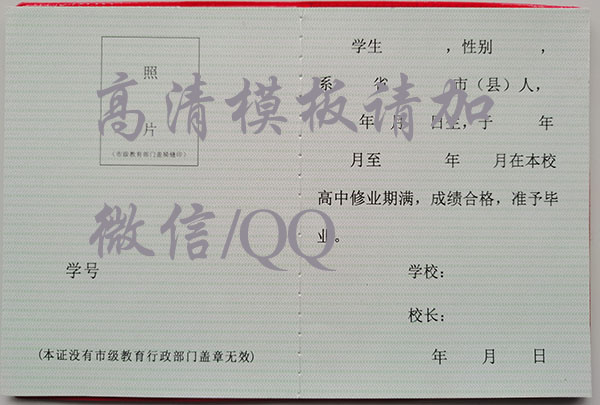 照
片
(市级教育部门盖骑缝印)
学号
(本证没有市级教育行政部门盖章无效)
学生 ，性别 ，
系 省 市（县）人，
年 月 日生，于 年
月至 年 月在本校
高中修业期满，成绩合格，准予毕
业。
学校：
校长：
年 月 日
高清模板请加
微信/QQ